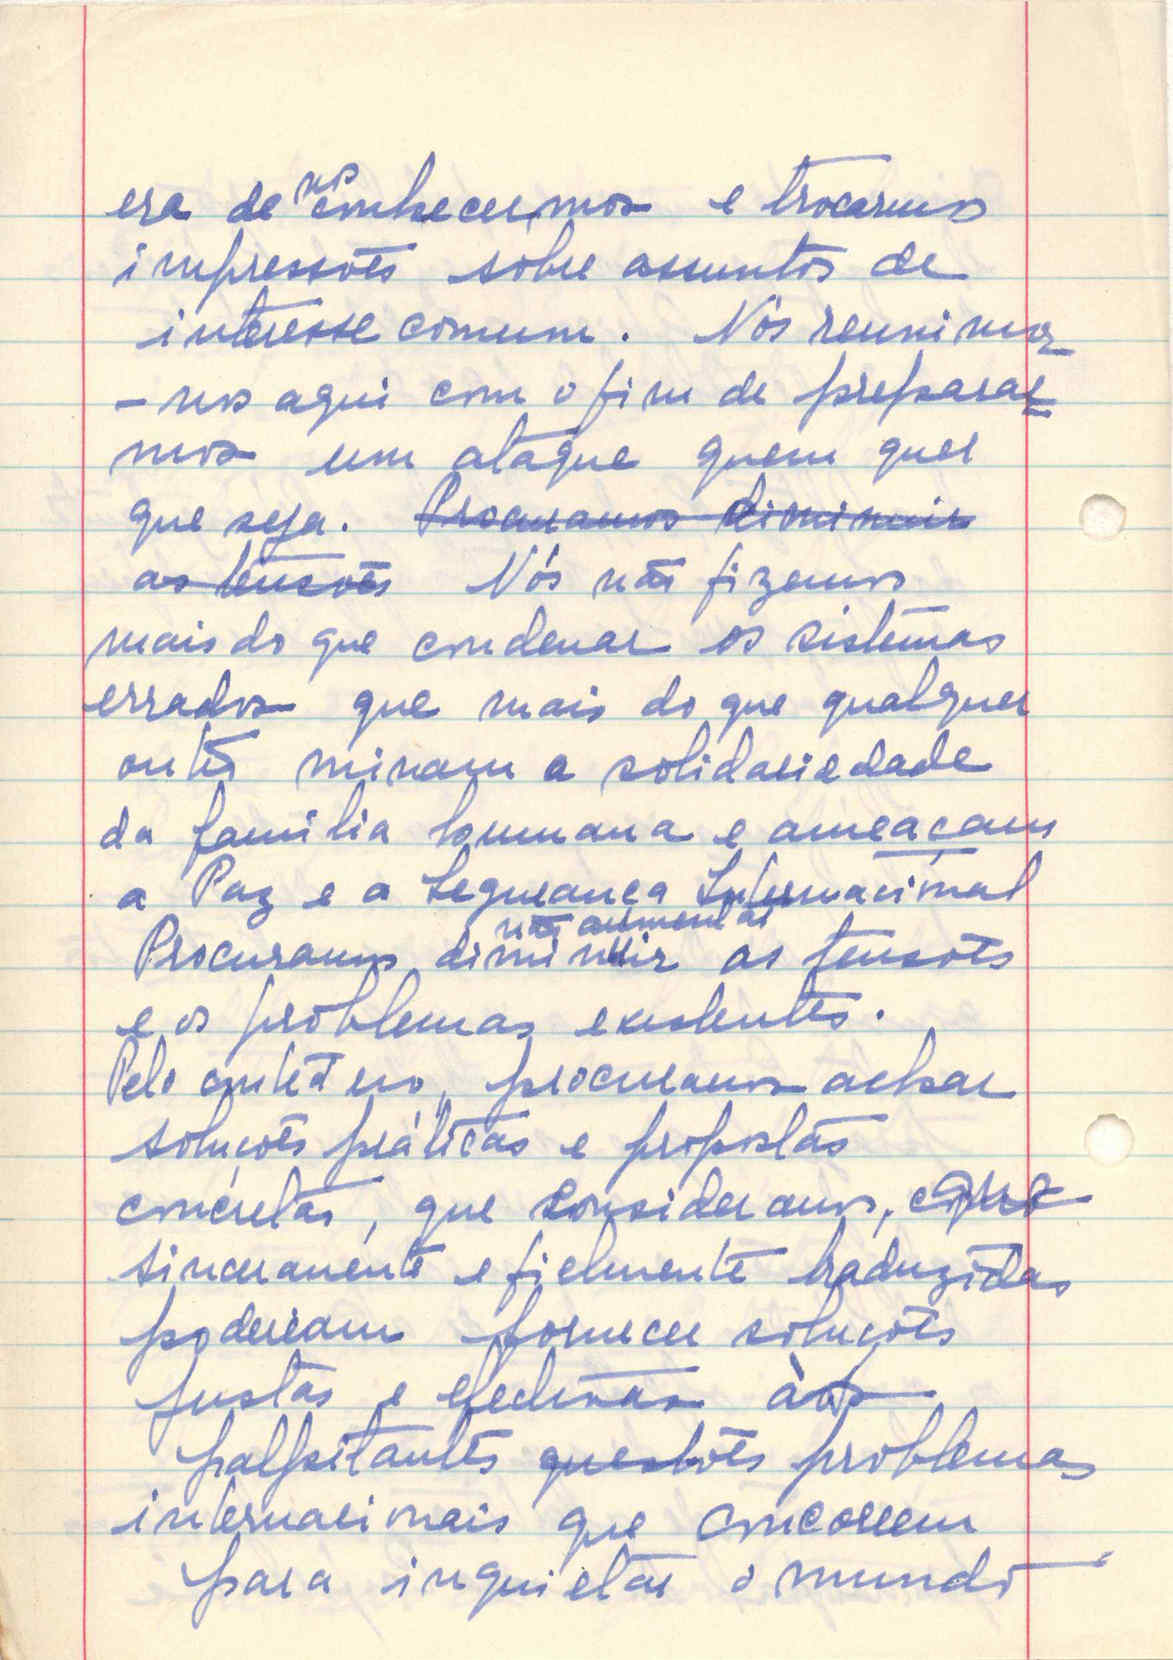 era de nos conhecermos e trocarmos
impressões sobre assuntos de
interesse comum. Nós reunimos
-nos aqui com o fim de preparar
mos um ataque quem quer
que seja. Procuramos diminuir
as tensões Nós não fizemos
mais do que condenar os sistemas
errados que mais do que qualquer
outro minam a solidariedade
da familia humana e ameaçam
a Paz e a Segurança Internacional
não aumentar
Procuramos diminuir as tensões
e os problemas existentes.
Pelo contrário, procuramos achar
soluções práticas e propostas
concretas, que consideramos,
sinceramente e fielmente traduzidas
poderiam fornecer soluções
justas e efectivas aos
palpitantes questões problemas
internacionais que concorrem
para inquietar o mundo